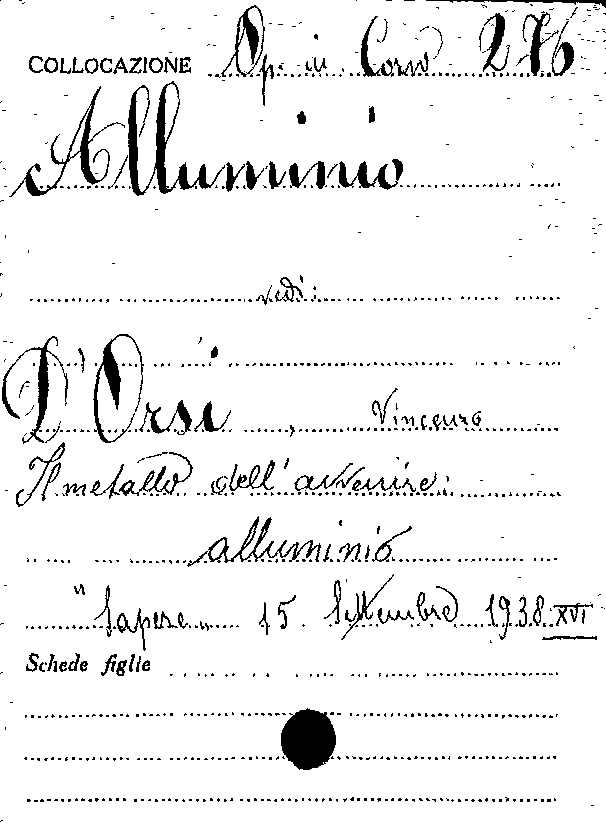 COLLOCAZIONE Op. in Corso 276
Alluminio
vedi:
D'Orsi, Vincenzo
Il metallo dell'avvenire:
alluminio
"Sapere" 15 Settembre 1938 XVI
Schede figlie